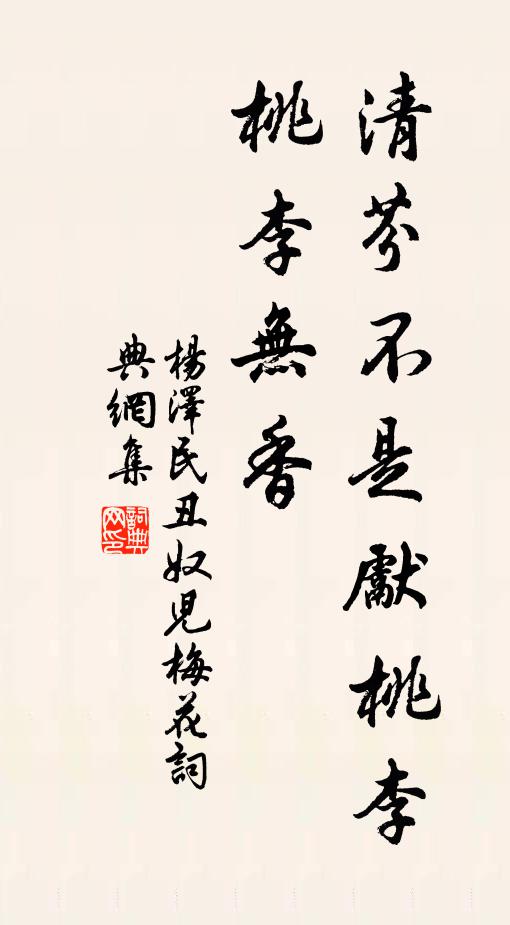 清芬不是獻桃李
桃李無香
楊澤民丑奴兒梅花詞
典網集
詞典網印